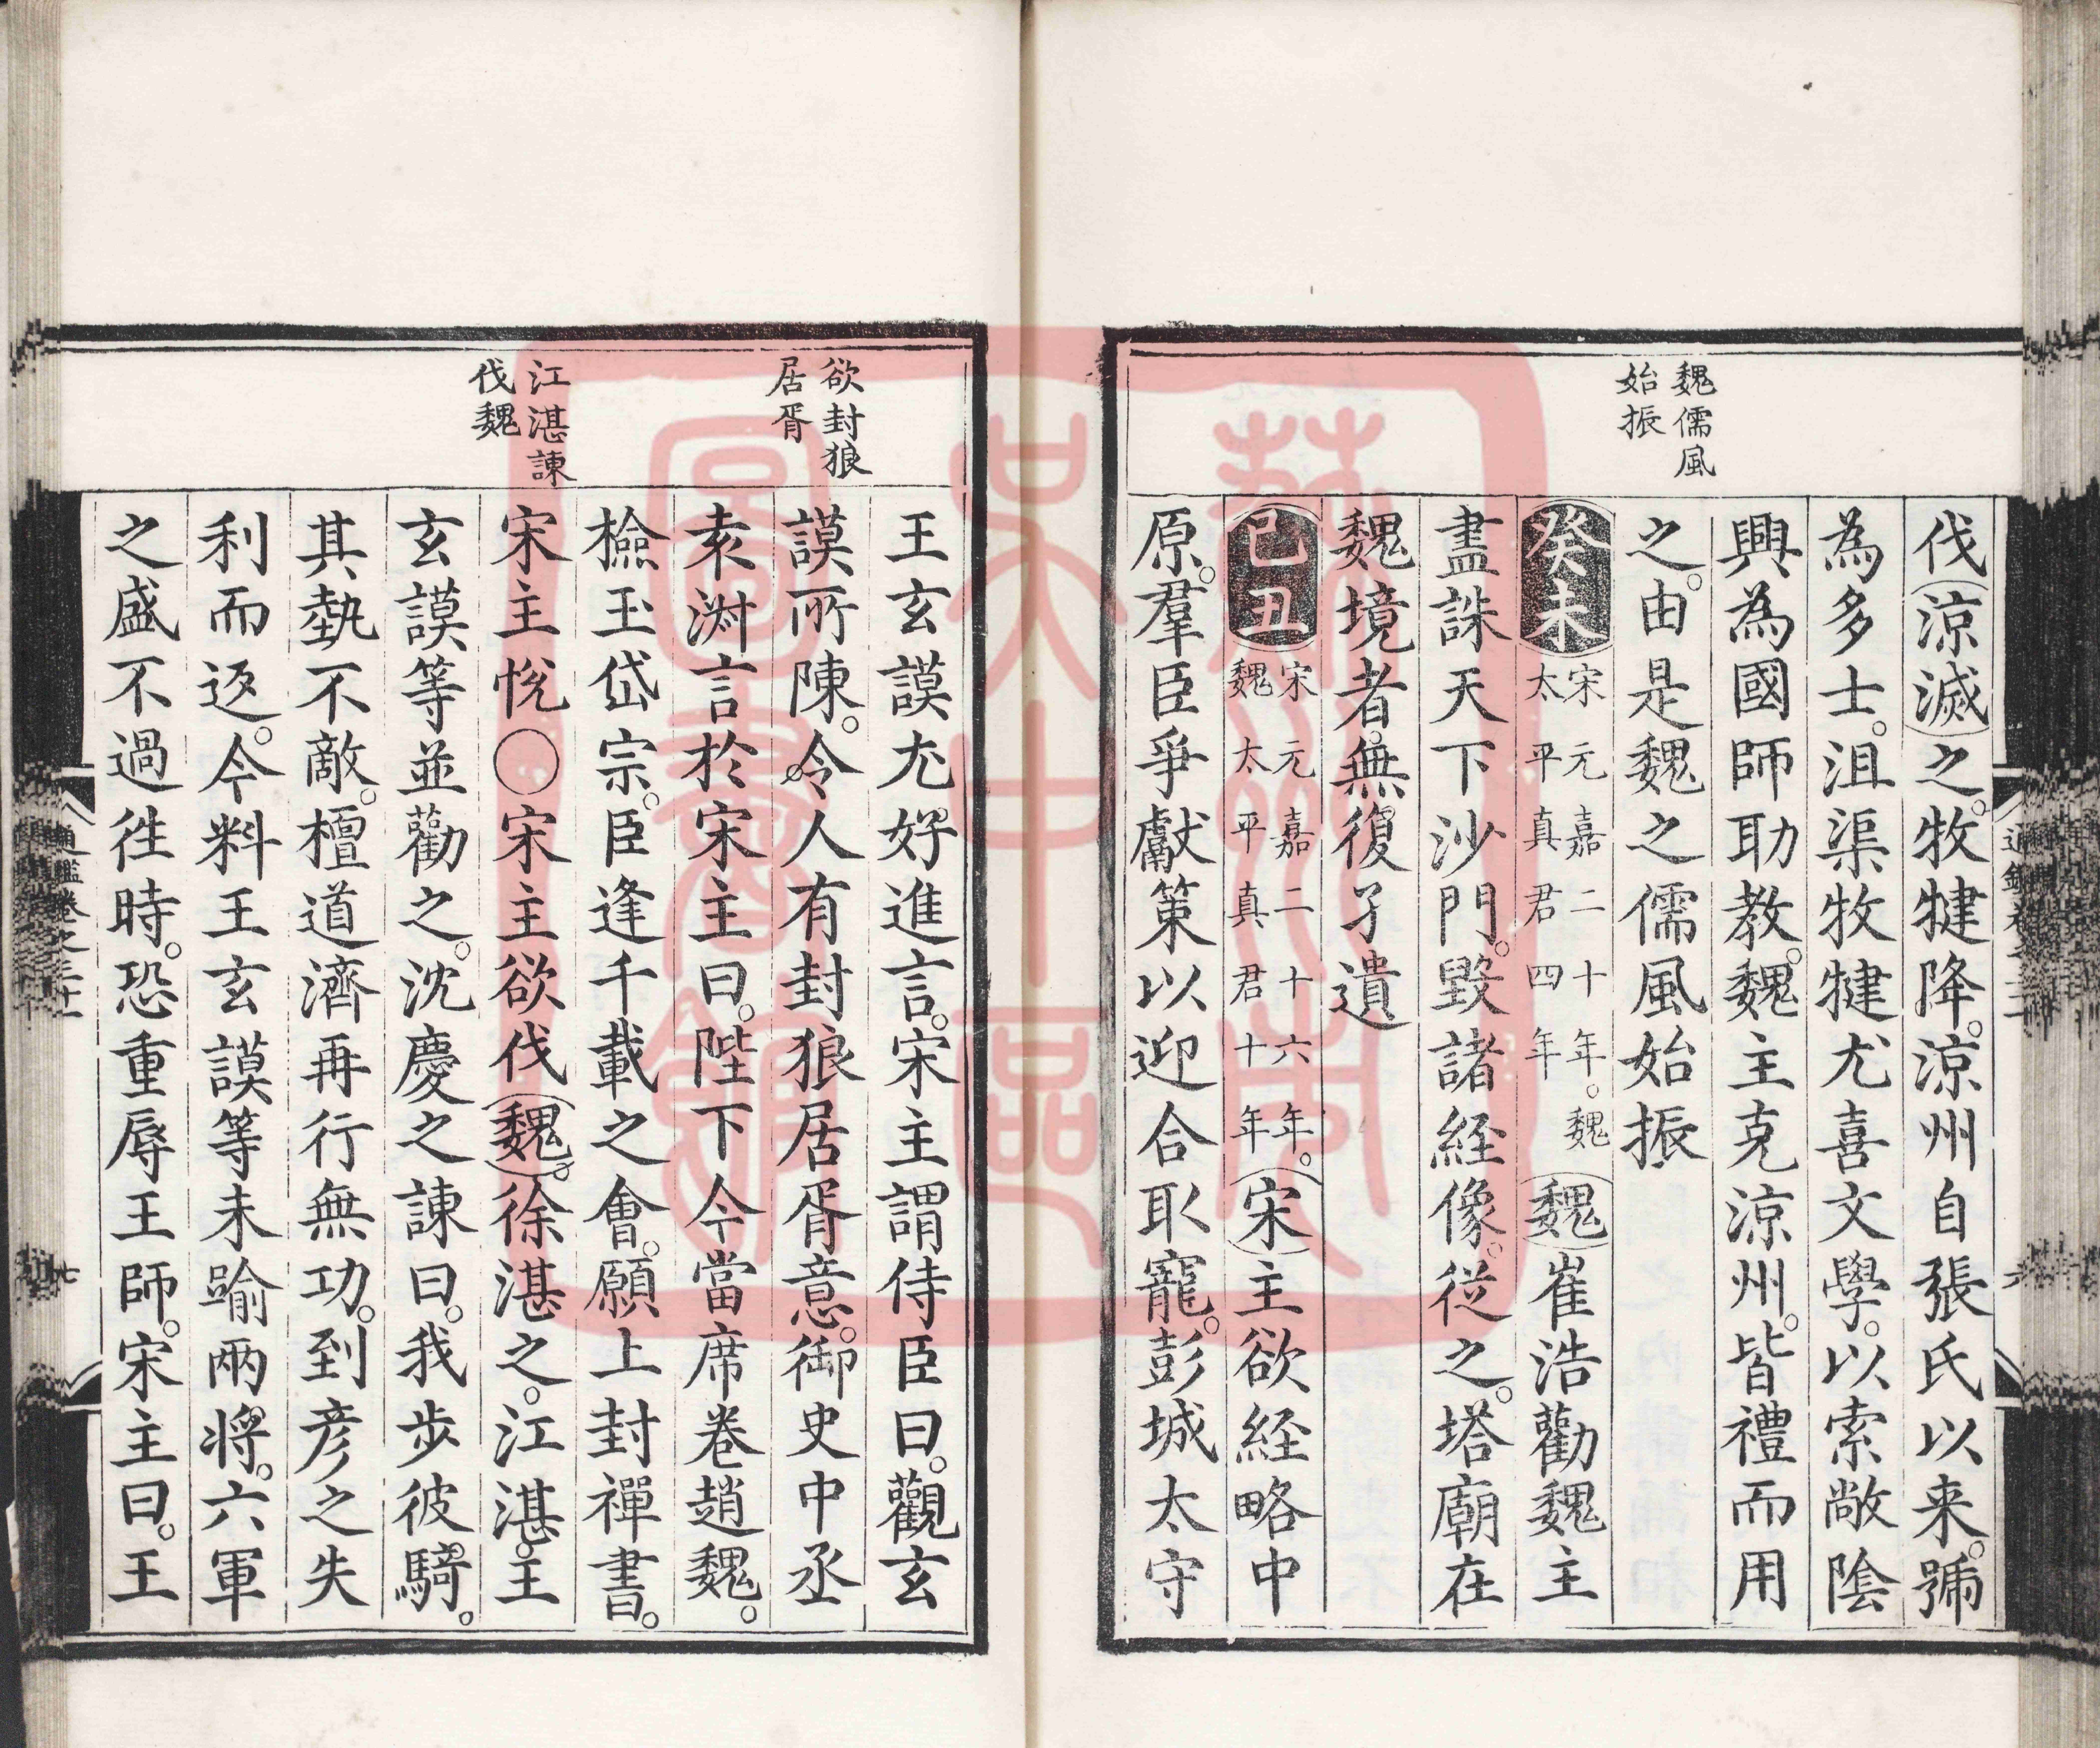 魏儒風
始振
伐涼滅之。牧犍降。涼州自張氏以来。號
為多士。沮渠牧犍尤喜文學。以索敞陰
興為國師助教。魏主克涼州。皆禮而用
之。由是魏之儒風始振
癸未宋元嘉二十年。魏太平真君四年魏崔浩勸魏主
盡誅天下沙門。毀諸経像。從之。塔廟在
魏境者。無復孑遺
己丑宋元嘉二十六年。魏太平真君十年宋主欲経略中
原。羣臣爭獻策以迎合取寵。彭城太守
欲封狼
居胥
江湛諫
伐魏
王玄謨尤好進言。宋主謂侍臣曰。觀玄
謨所陳。令人有封狼居胥意。御史中丞
袁淵言於宋主曰。陛下今當席卷趙魏。
檢玉岱宗。臣逢千載之會。願上封禪書。
宋主悅○宋主欲伐魏。徐湛之。江湛。王
玄謨等並勸之。沈慶之諫曰。我步彼騎。
其勢不敵。檀道濟再行無功。到彦之失
利而返。今料王玄謨等未踰兩將。六軍
之盛不過徃時。恐重辱王師。宋主曰。王
通鑑卷之三十二
七
蘇州
吳大十區
圖書館